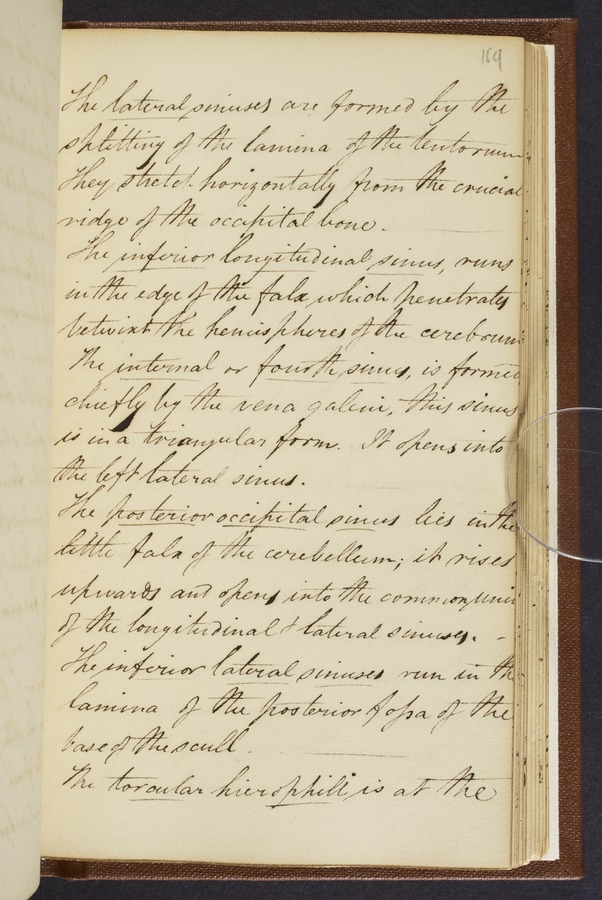 164
The lateral sinuses are formed by the
splitting of the lamina of the tentorium
They stretch horizontally from the crucial
ridge of the occipital bone.
The inferior longitudinal sinus, runs
in the edge of the falx which penetrates
betwixt the hemispheres of the cerebrum
The internal or fourth sinus, is formed
chiefly by the vena galeni, this sinus
is in a triangular form. It opens into
the left lateral sinus.
The posterior occipital sinus lies in the
little falx of the cerebellum; it rises
upwards and opens into the common union
of the longitudinal & lateral sinuses. -
The inferior lateral sinuses run in the
lamina of the posterior fossa of the
base of the scull.
The torcular hierophili is at the